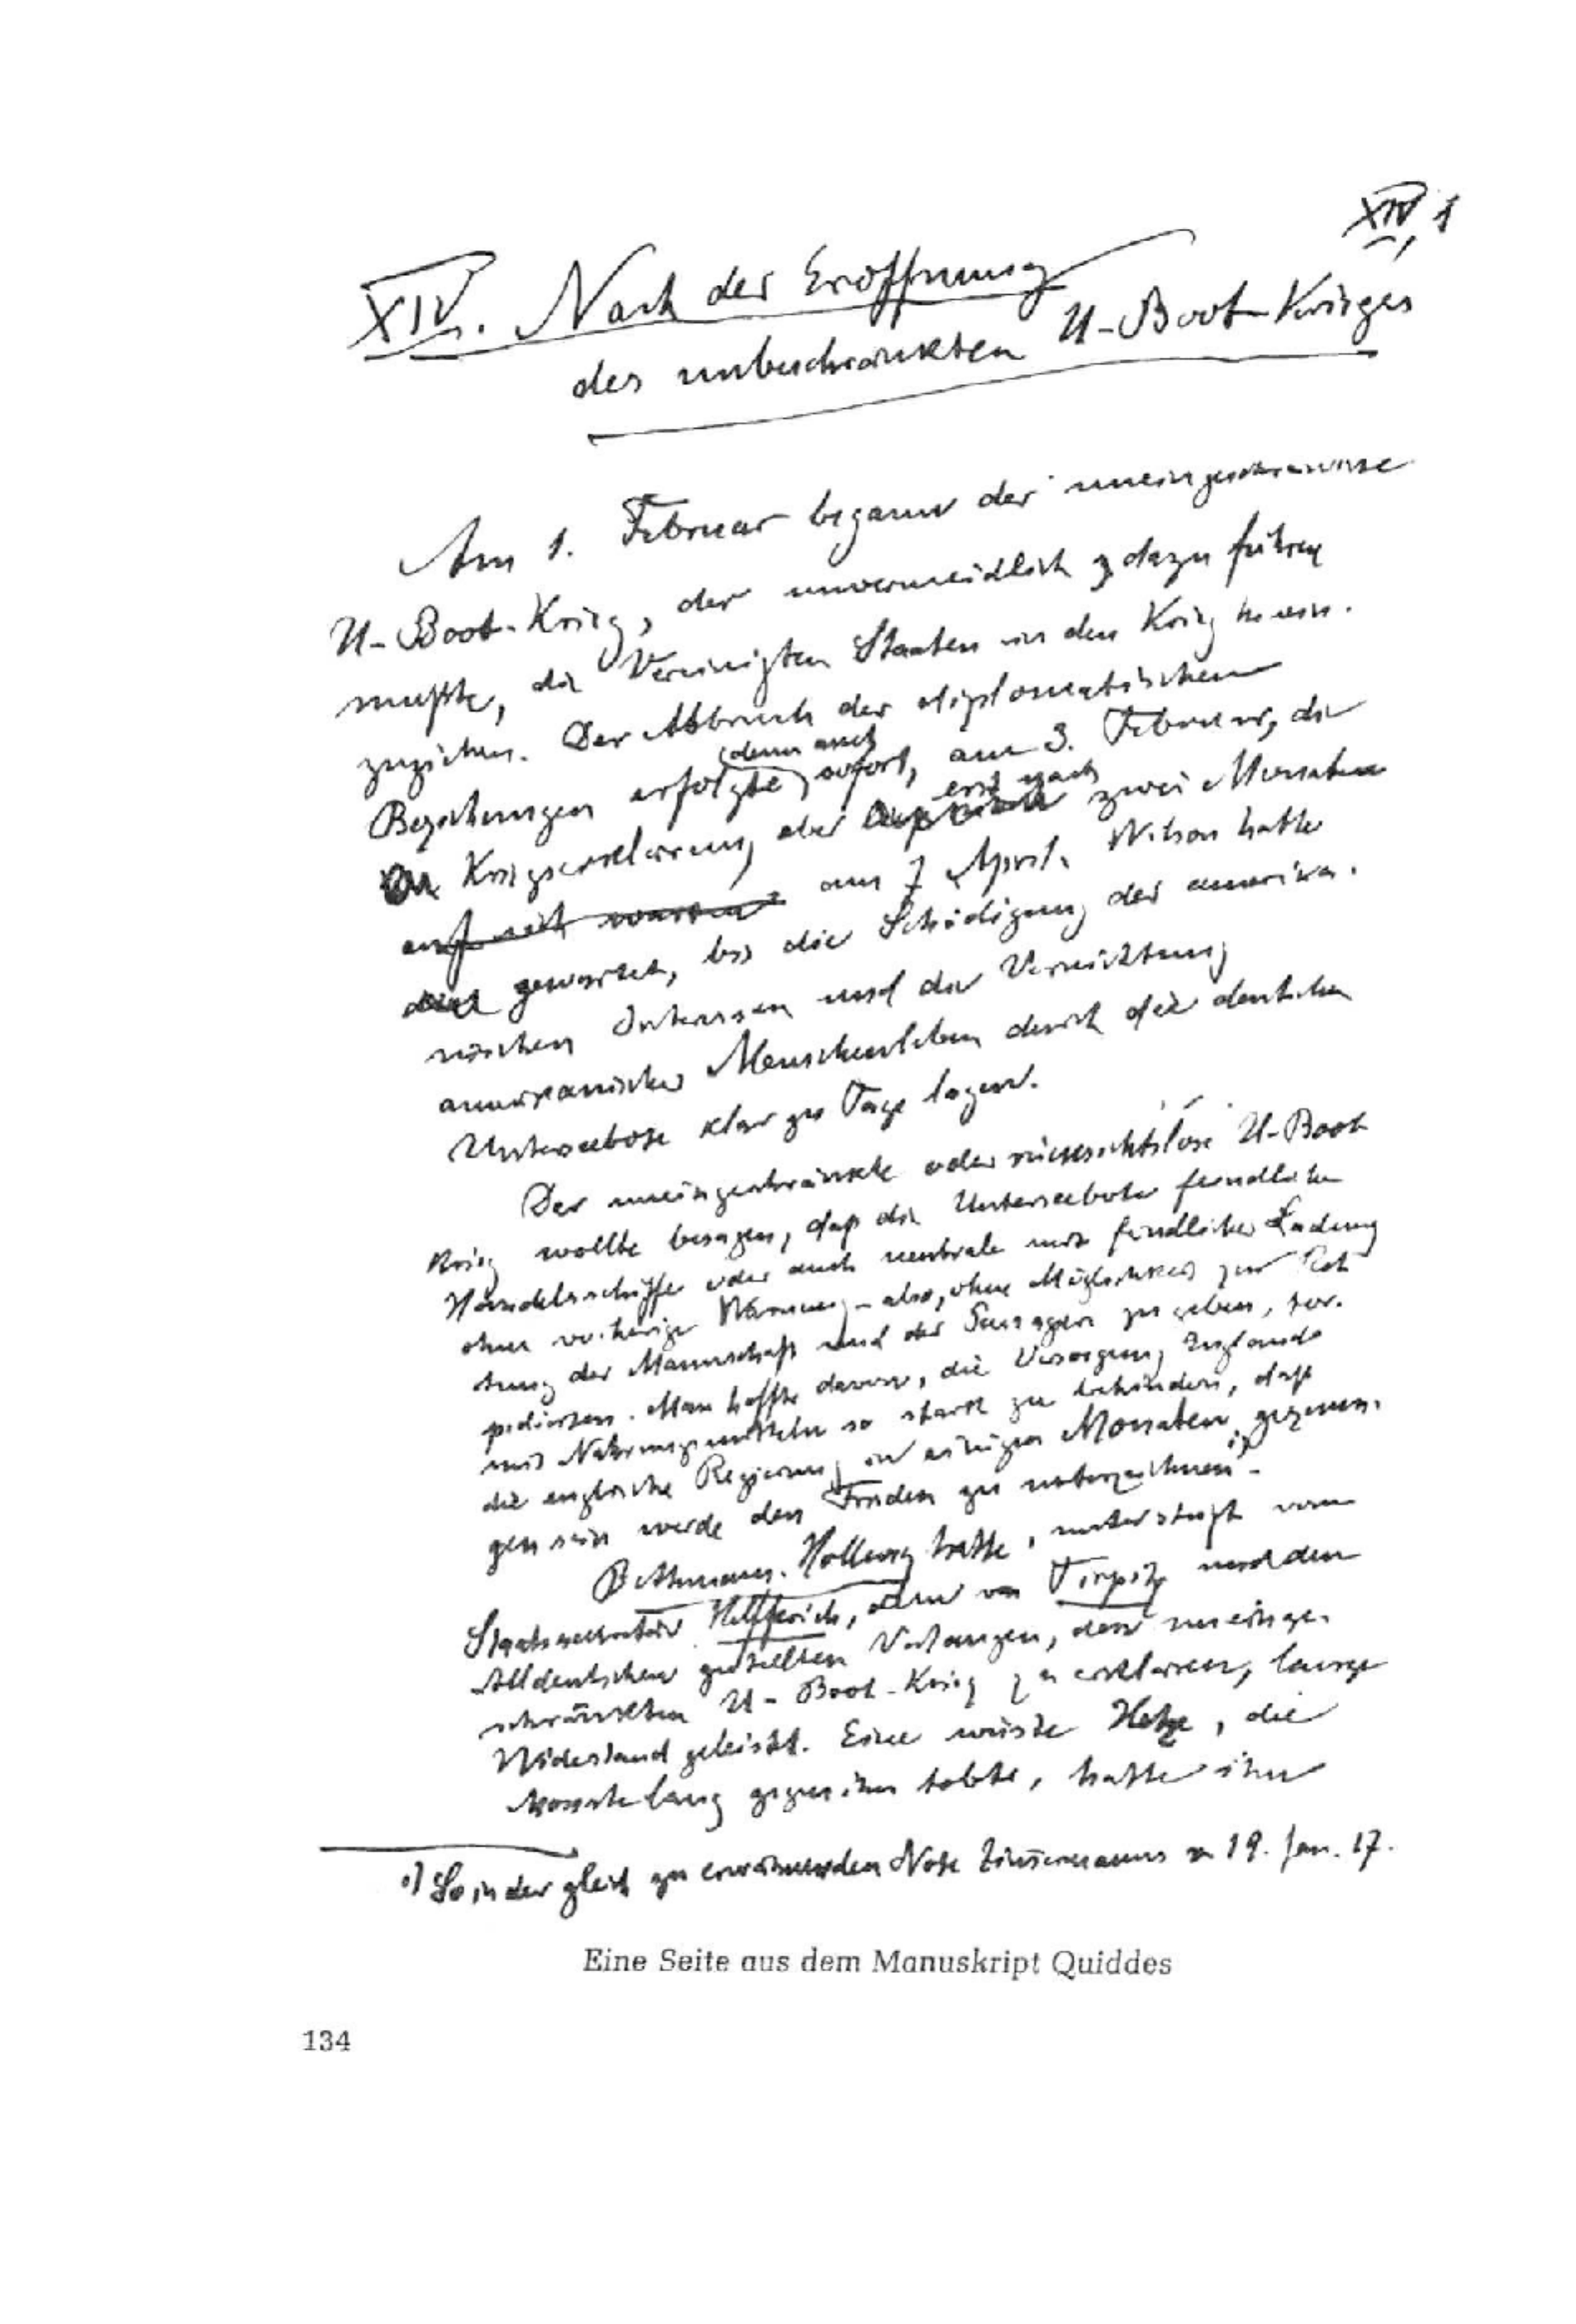 XIV, 1
XIV. Nach der Eröffnung
des unbeschränkten U-Boot-Krieges
Am 1. Februar begann der uneingeschränkte
U-Boot-Krieg, der unvermeidlich dazu führen
mußte, die Vereinigten Staaten in den Krieg hinein-
zuziehen. Der Abbruch der diplomatischen
Beziehungen erfolgte denn auch sofort, am 3. Februar, die
Kriegserklärung aber erst nach zwei Monaten
auf sich warten am 7 April. Wilson hatte
gewartet, bis die Schädigung der amerika-
nischen Interessen und die Vernichtung
amerikanischer Menschenleben durch die deutschen
Unterseebote klar zu Tage lagen.
Der uneingeschränkte oder rücksichtslose U-Boot
Krieg wollte besagen, daß die Unterseebote feindliche
Handelsschiffe oder auch neutrale mit feindlicher Ladung
ohne vorherige Warnung - also, ohne Möglichkeit zur Ret
tung der Mannschaft und der Passagiere zu geben, tor-
pedierten. Man hoffte davon, die Versorgung Englands
mit Nahrungsmitteln so stark zu behindern, daß
die englische Regierung in einigen Monaten gezwun-
gen sein werde den Frieden zu unterzeichnen 1).
Bethmann-Hollweg hatte, unterstützt vom
Staatssekretär Helfferich, dem von Tirpitz und den
Alldeutschen gestellten Verlangen, den uneinge-
schränkten U-Boot-Krieg zu erklären, lange
Widerstand geleistet. Eine wüste Hetze, die
Monate lang gegen ihn tobte, hatte ihn
1) So in der gleich zu erwähnenden Note Zimmermanns v. 19. Jan. 17.
Eine Seite aus dem Manuskript Quiddes
134